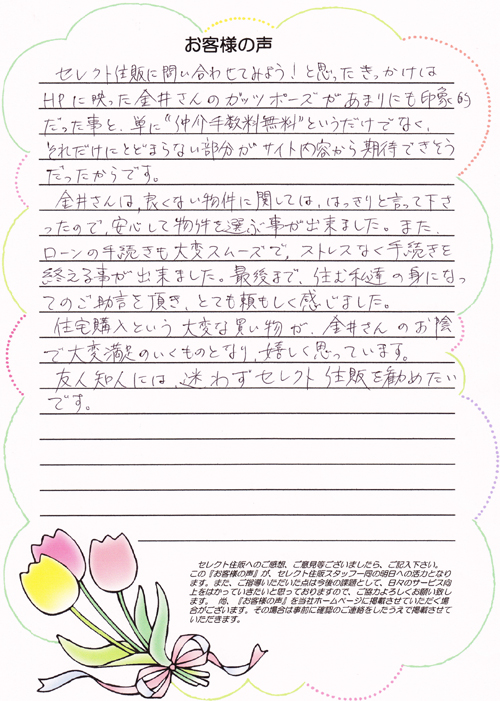 お客様の声
セレクト住販に問い合わせてみよう！と思ったきっかけは
HPに映った金井さんのガッツポーズがあまりにも印象的
だった事と、単に“仲介手数料無料”というだけでなく、
それだけにとどまらない部分がサイト内容から期待できそう
だったからです。
金井さんは、良くない物件に関しては、はっきりと言って下さ
ったので、安心して物件を選ぶ事が出来ました。また、
ローンの手続きも大変スムーズで、ストレスなく手続きを
終える事が出来ました。最後まで、住む私達の身になっ
てのご助言を頂き、とても頼もしく感じました。
住宅購入という大変な買い物が、金井さんのお陰
で大変満足のいくものとなり、嬉しく思っています。
友人知人には、迷わずセレクト住販を勧めたい
です。
セレクト住販へのご感想、ご意見等ございましたら、ご記入下さい。
この『お客様の声』が、セレクト住販スタッフ一同の明日への活力となり
ます。また、ご指導いただいた点は今後の課題として、日々のサービス向
上をはかっていきたいと思っておりますので、ご協力よろしくお願い致し
ます。　尚、『お客様の声』を当社ホームページに掲載させていただく場
合がございます。その場合は事前に確認のご連絡をしたうえで掲載させて
いただきます。